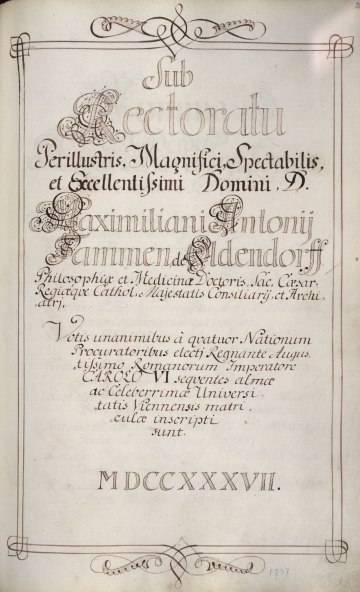 Sub
Rectoratu
Perillustris, Magnifici, Spectabilis,
et Excellentissimi Domini, D.
Maximiliani Antonij
Tammen de Aldendorff
Philosophiæ et Medicinæ Doctoris, Sac. Cæsar.
Regiæqve Cathol. Majestatis Consiliarij, et Archi-
atri,
Votis unanimibus à qvatuor Nationum
Procuratoribus electi Regnante Augus,
tissimo Romanorum Imperatore
CAROLO VI seqventes almæ
ac Celeberrimæ Universi
tatis Viennensis matri,
culæ inscripti
sunt.
MDCCXXXVII.
1737